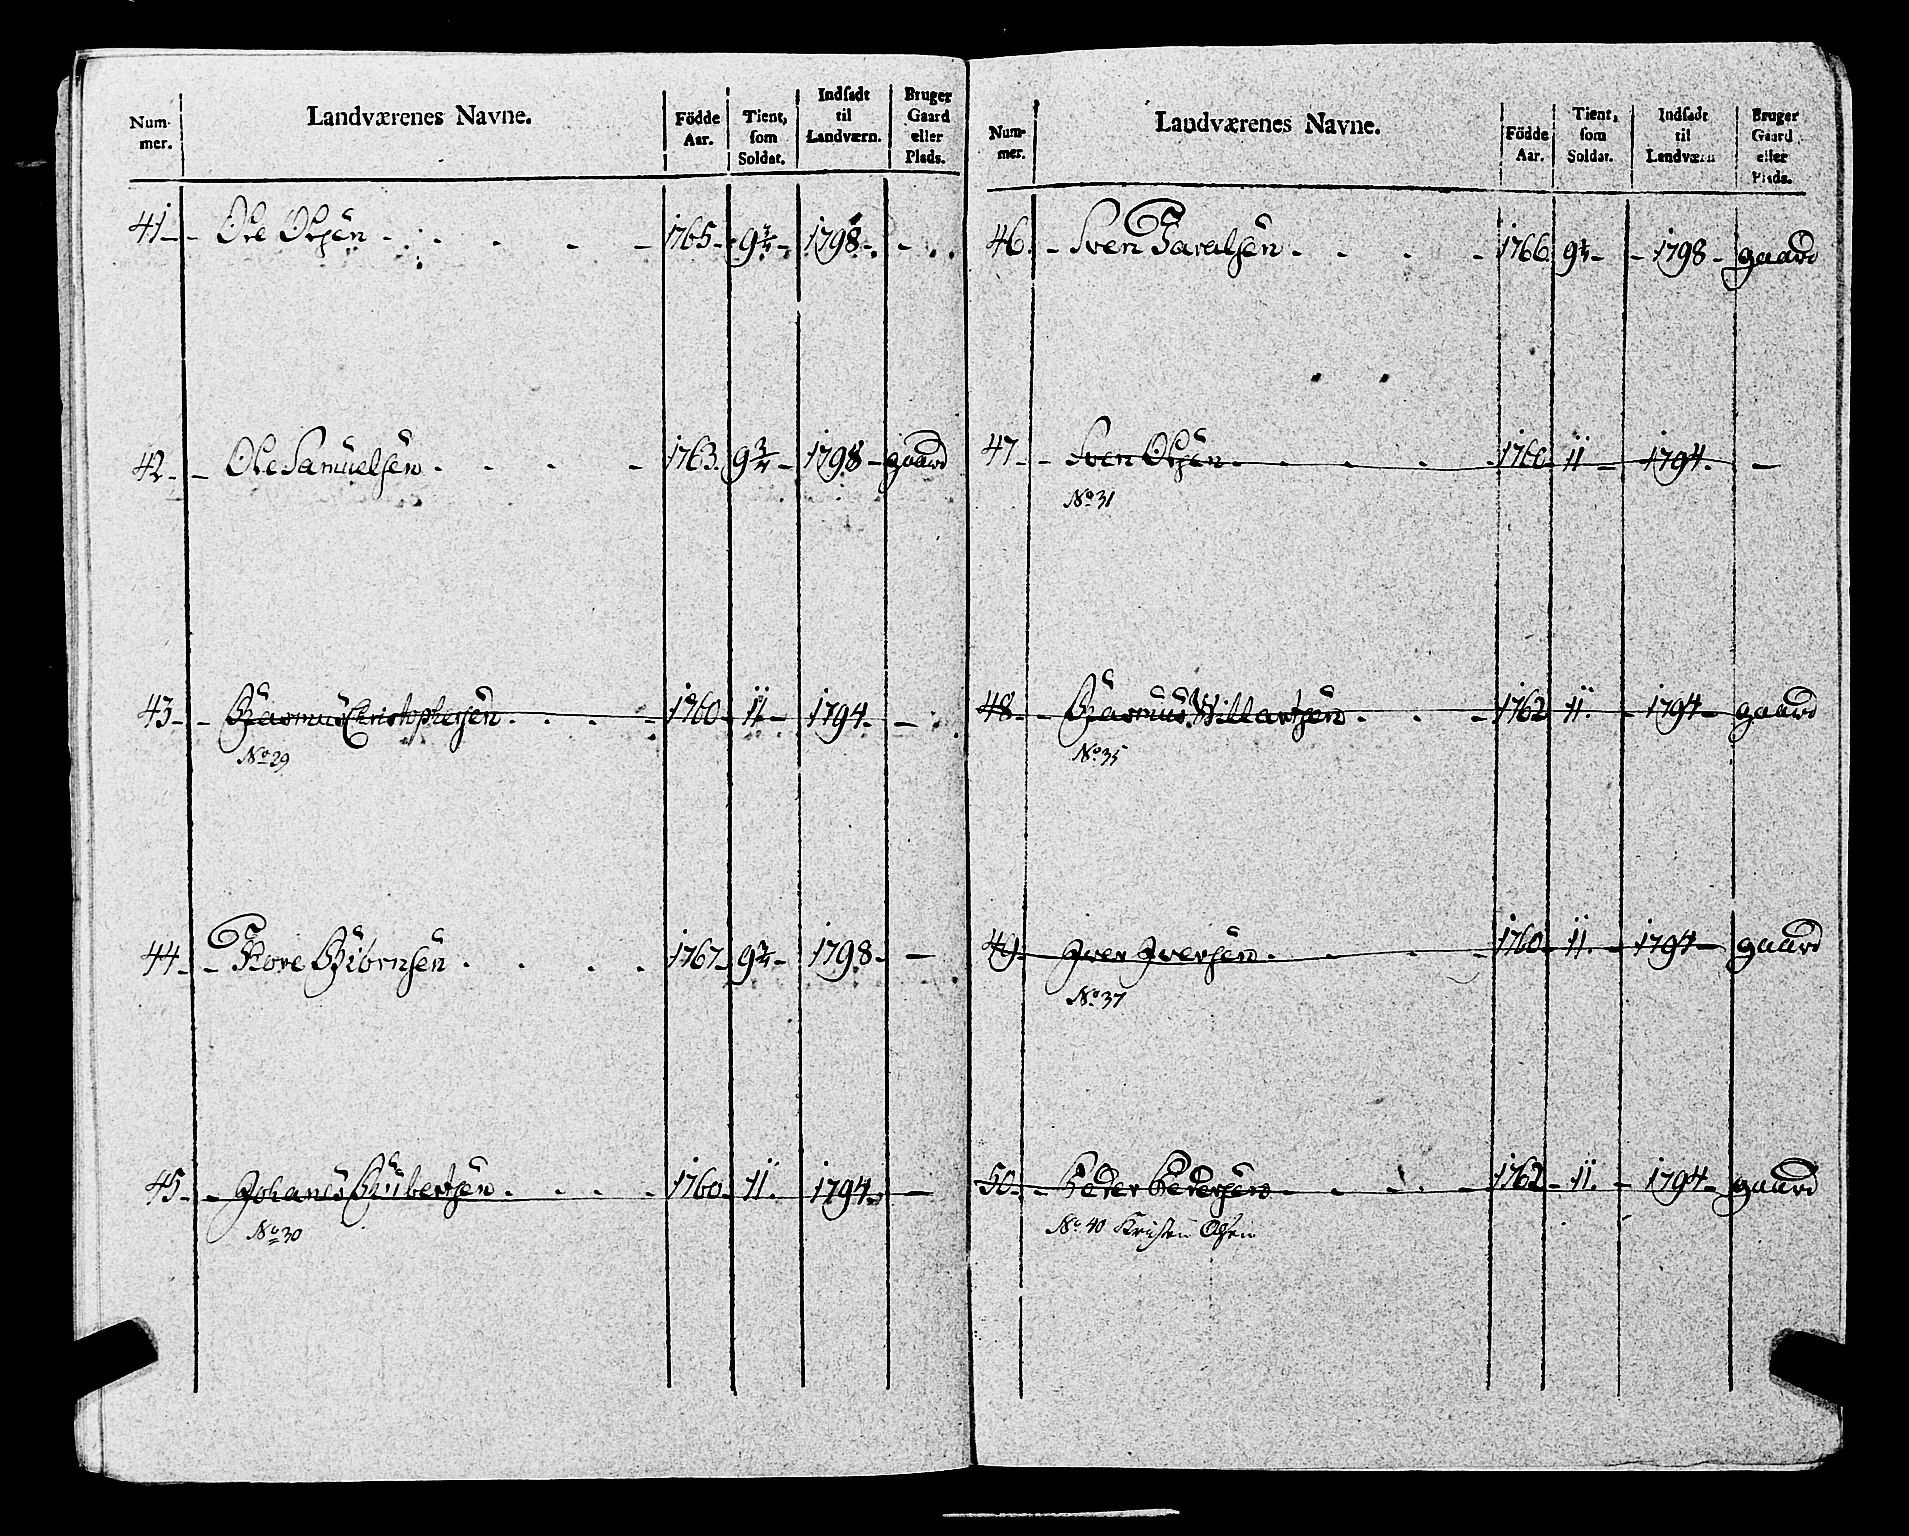 Num-mer. Landværenes Navne. Födde Aar. Tient, som Soldat. Indsadt til Landværn. Bruger Gaard eller Plads.
41 - Ole Olsen 1765 - 9¾ - 1798 -
42 - Ole Samuelsen 1763 9¾ - 1798 - gaard
43 - Rasmus Christophersen 1760 - 11 - 1794 -
No 29
44 - Tore Biörnsen 1767 - 9¾ - 1798 - -
45 - Johanes Gubertsen 1760 - 11. 1794 -
No 30
Num-mer. Landværenes Navne. Födde Aar. Tient, som Soldat. Indsadt til Landværn Bruger Gaard eller Plads.
46 - Sven Taralsen 1766 9¾ - 1798 - gaard
47 - Sven Olsen 1760 11 - 1794 -
No 31
48 - Rasmus Willartsen 1762 11. - 1794 - gaard
No 35
49 - Iver Iversen 1760 - 11. - 1794 - gaard
No 37
50 - Peder Pedersen 1762 - 11. - 1794 - gaard
No 40 Kristen Olsen